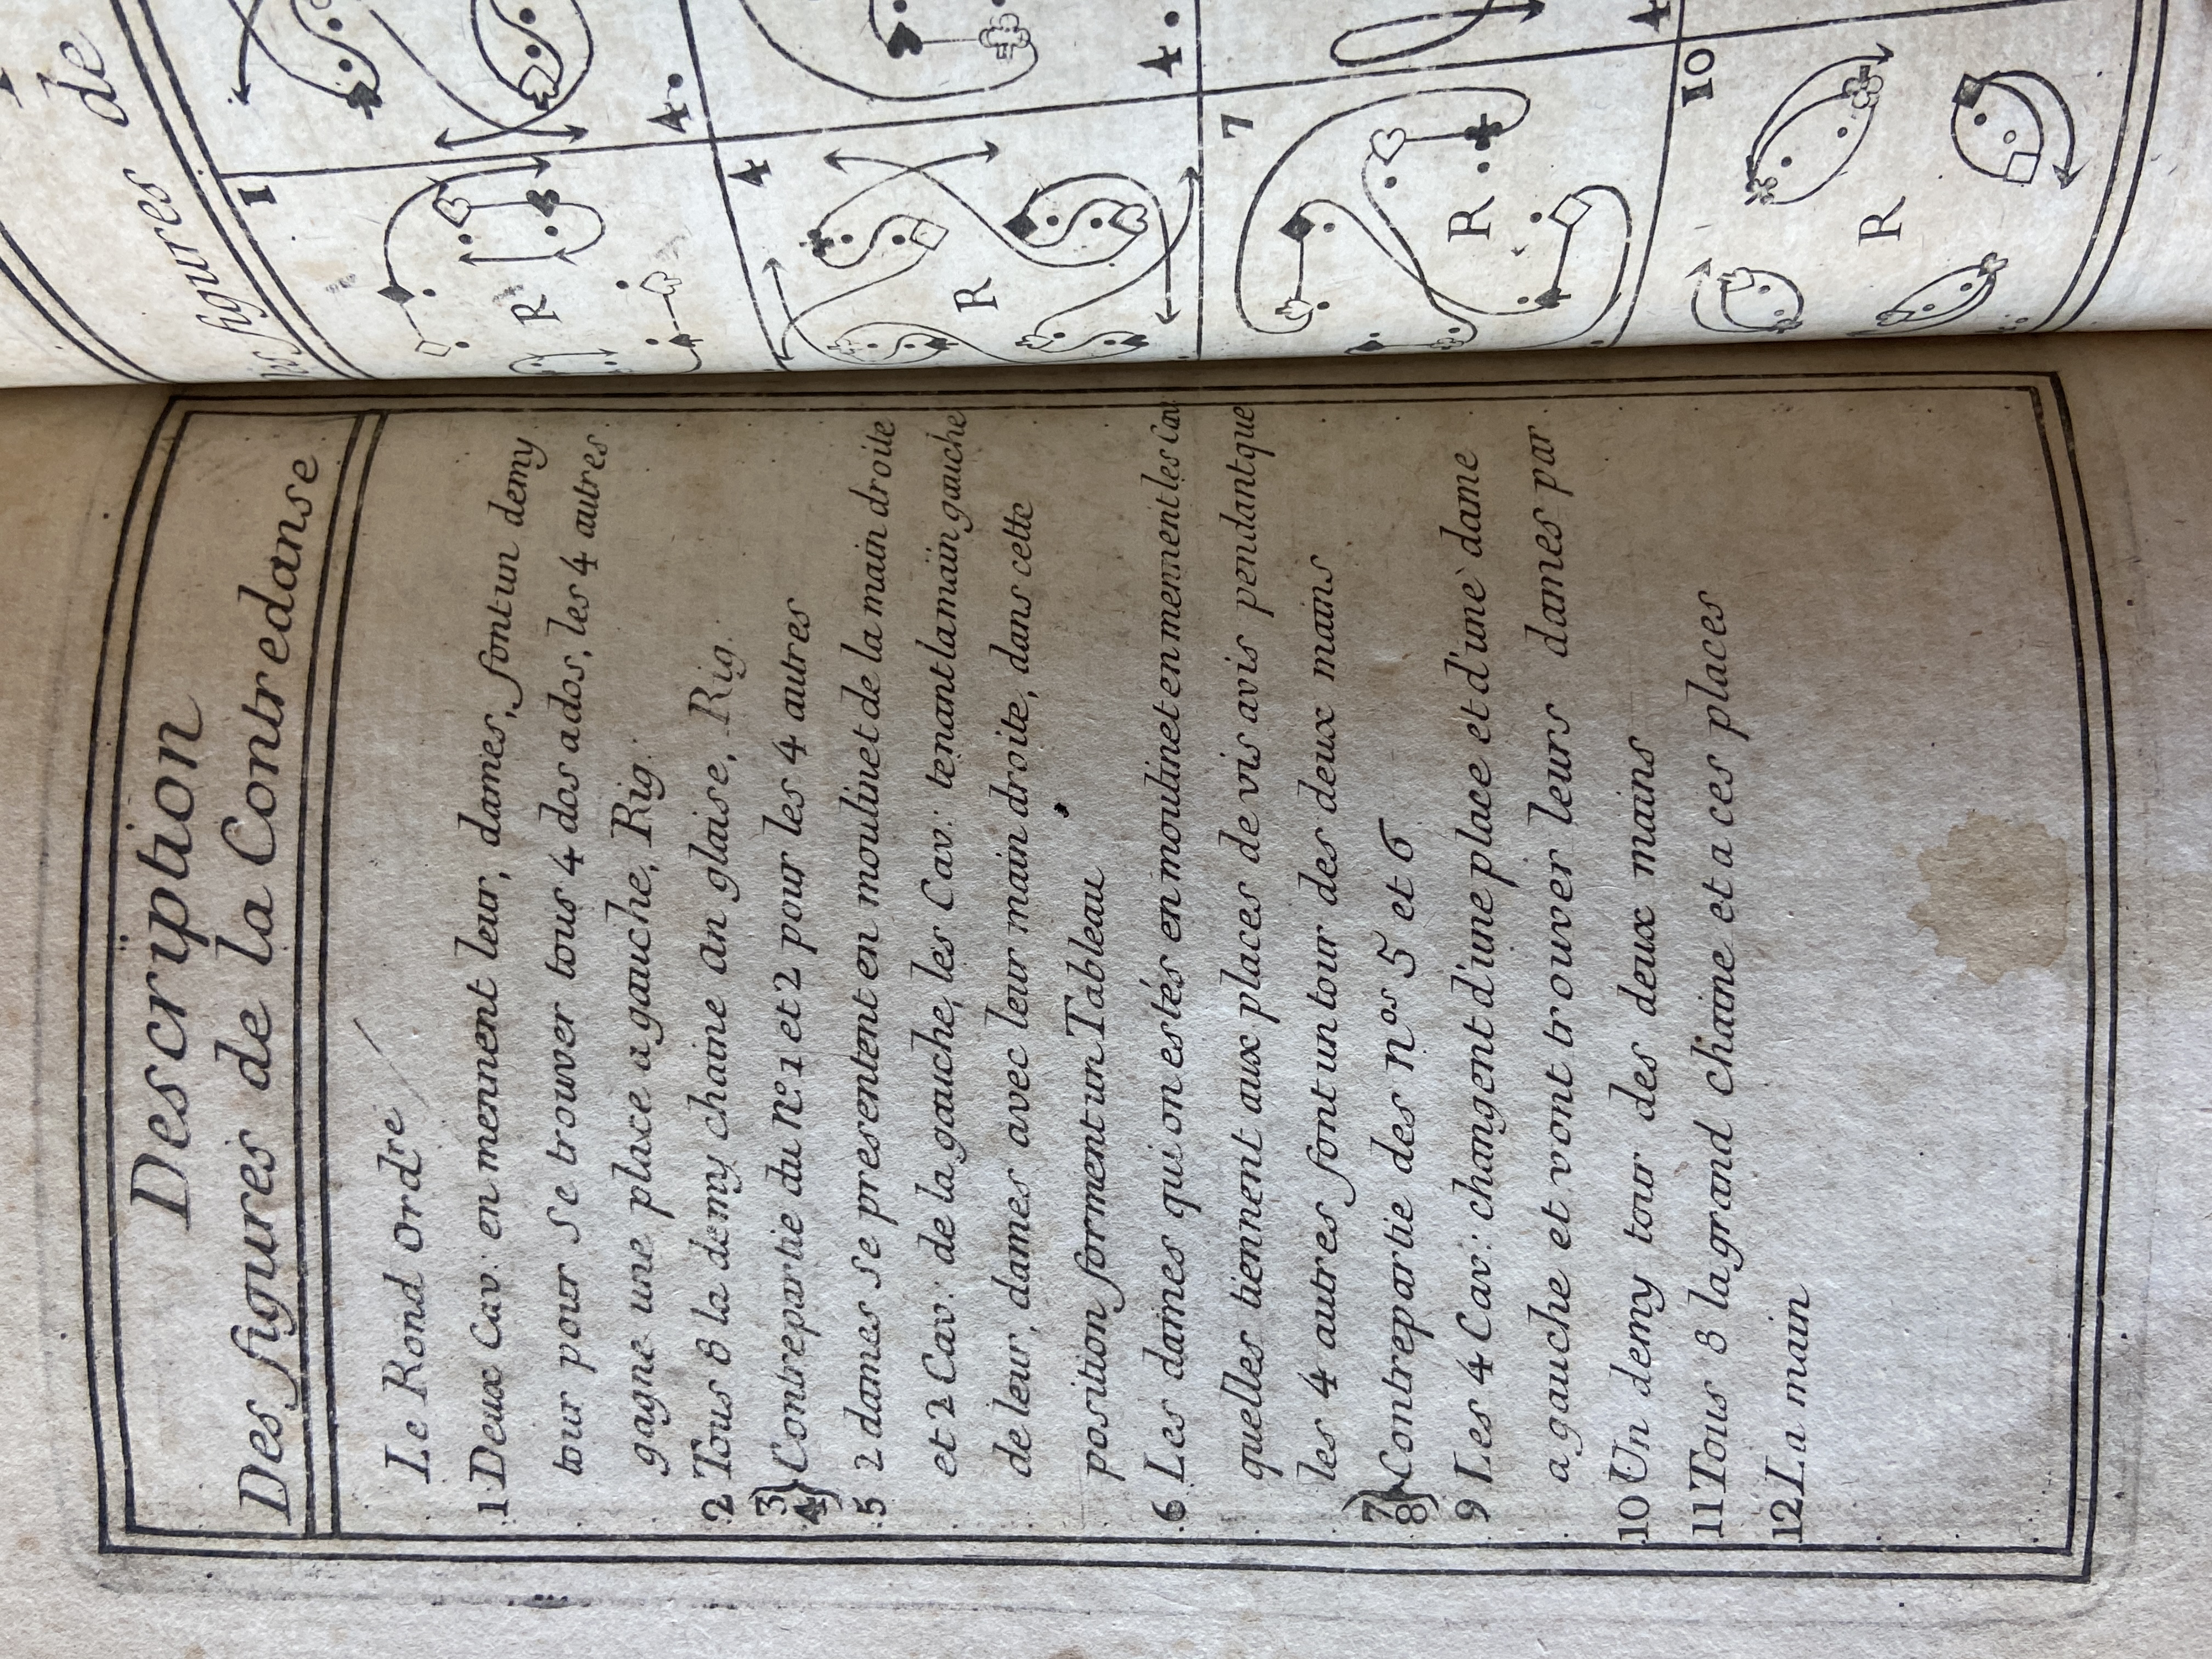 Description
Des figures de la Contredanse
Le Rond ordre
1 Deux Cav: en mennent leur, dames, font un demy
tour pour se trouver tous 4 dos a dos, les 4 autres
gagne une place a gauche, Rig.
2 Tous 8 la demy chaine an glaise, Rig.
3
4 Contrepartie du No. 1 et 2 pour les 4 autres
5 2 dames se presentent en moulinet de la main droite
et 2 Cav: de la gauche, les Cav: tenant la main gauche
de leur, dames avec leur main droite, dans cette
position forment un Tableau
6 Les dames qui on estés en moulinet en mennent les Cav
quelles tiennent aux places de vis avis pendant que
les 4 autres font un tour des deux mains
7
8 Contrepartie des nos 5 et 6
9 Les 4 Cav: changent d'une place et d'une dame
a gauche et vont trouver leurs dames par
10 Un demy tour des deux mains
11 Tous 8 la grand chaine et a ces places
12 La main
de
figures
1
R
4
4
R
4
7
R
10
R